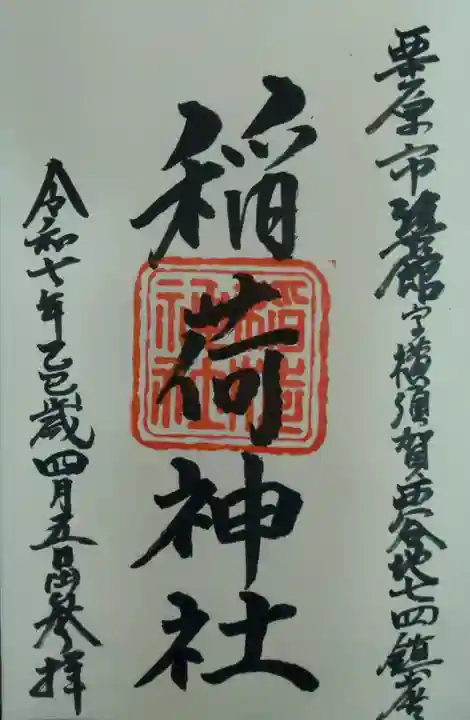 栗原市築館字横須賀西谷地七四鎮座
稲荷神社
稲荷神社
令和七年乙巳歳四月五日参拝